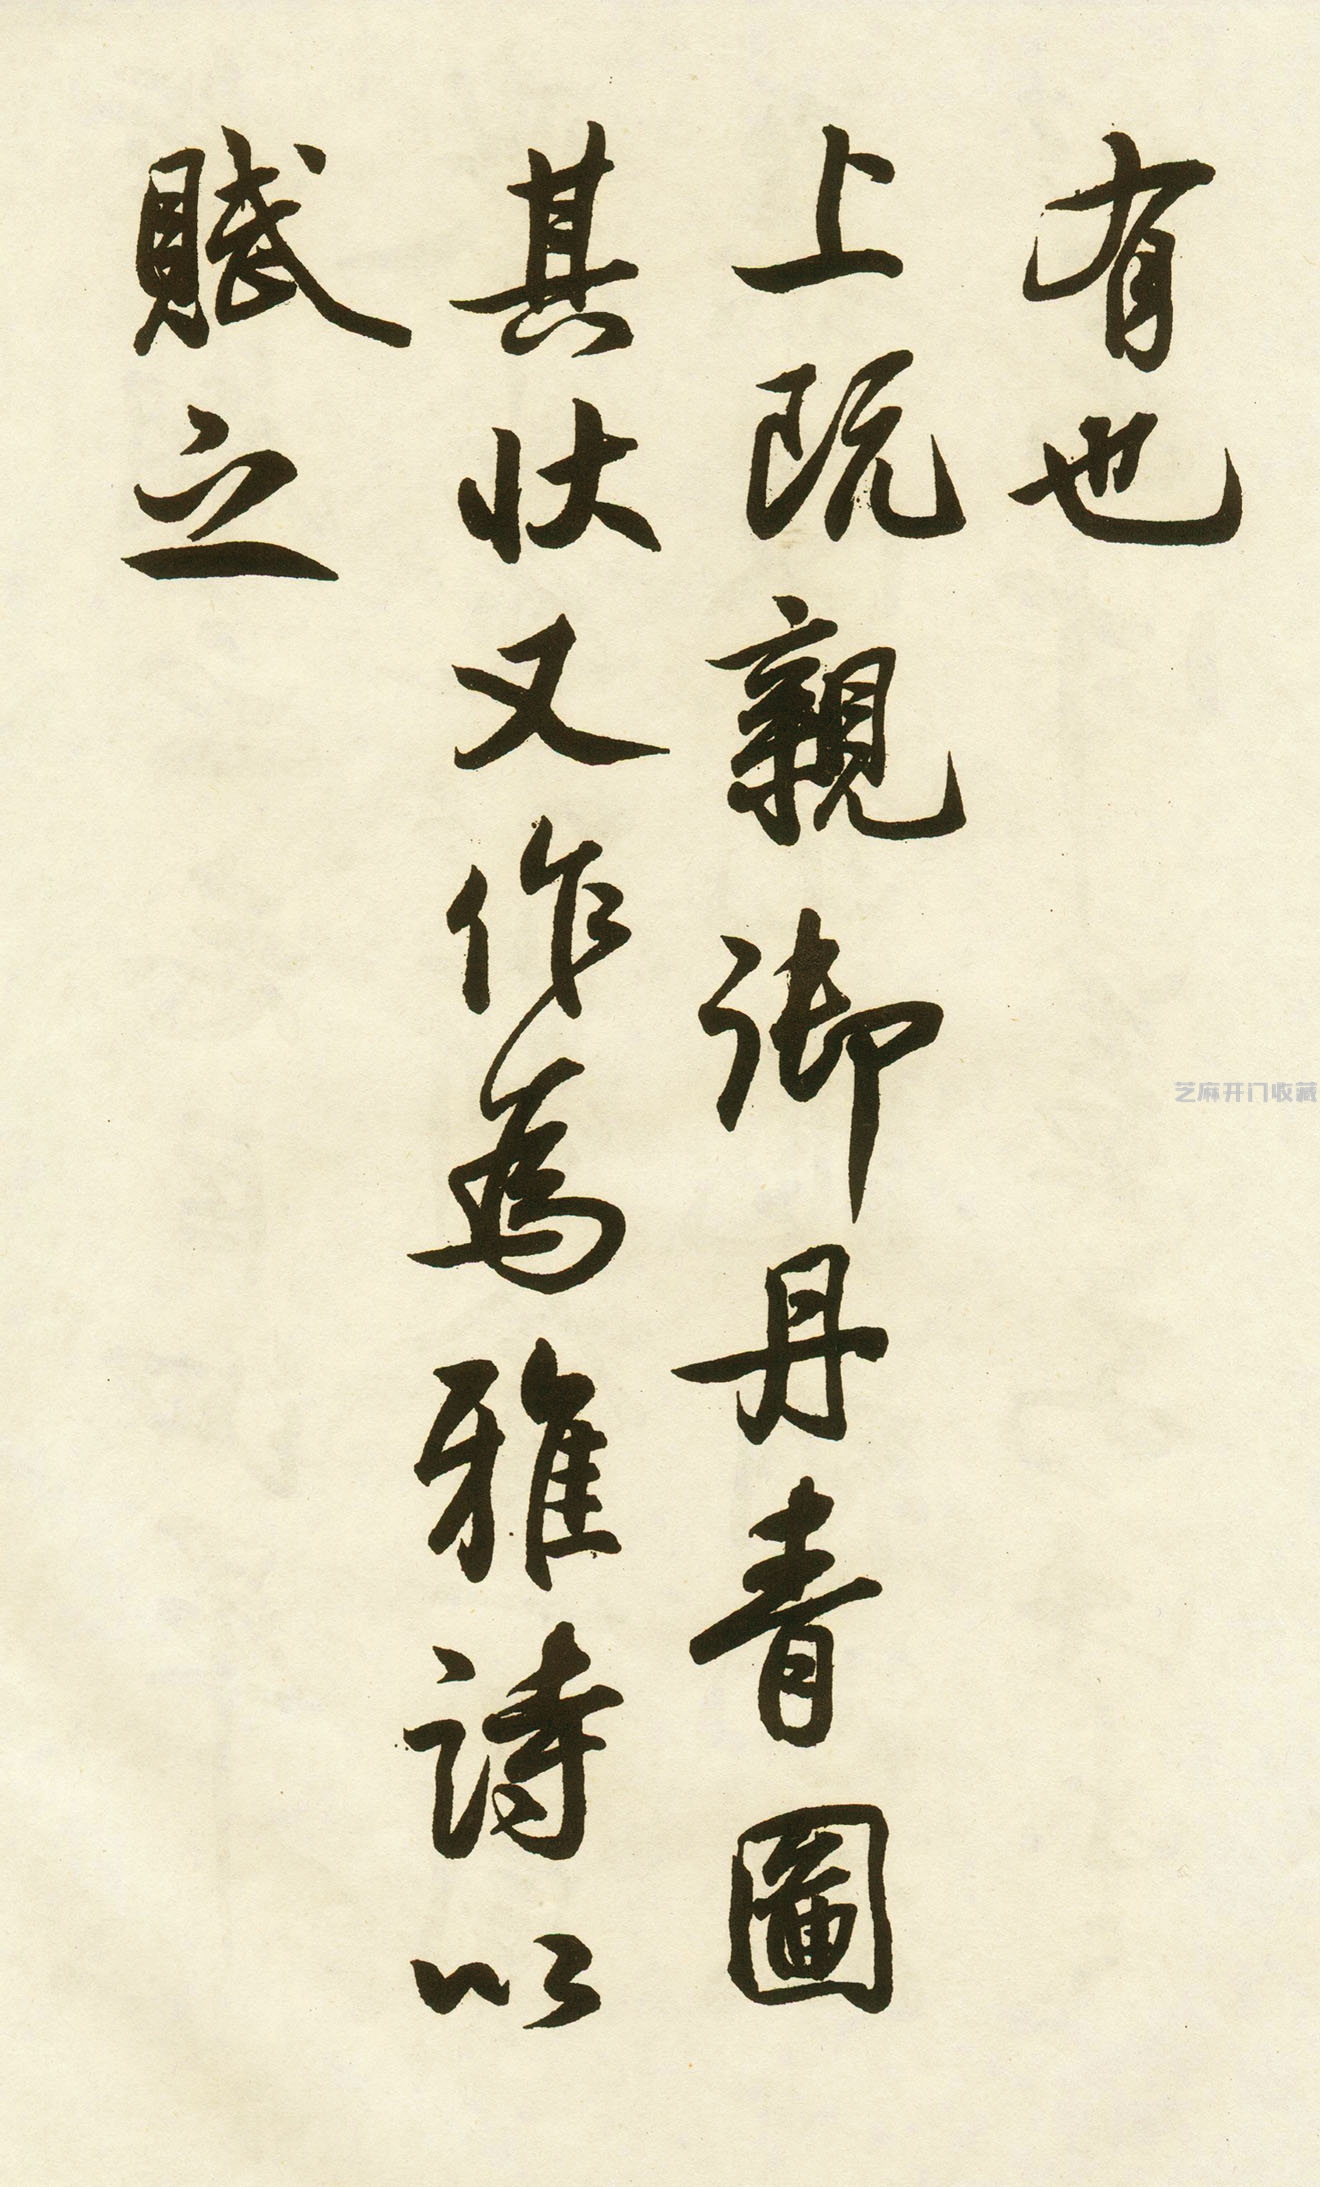 有也
上既親御丹青圖
其狀又作為雅詩以
賦之
芝麻开门收藏